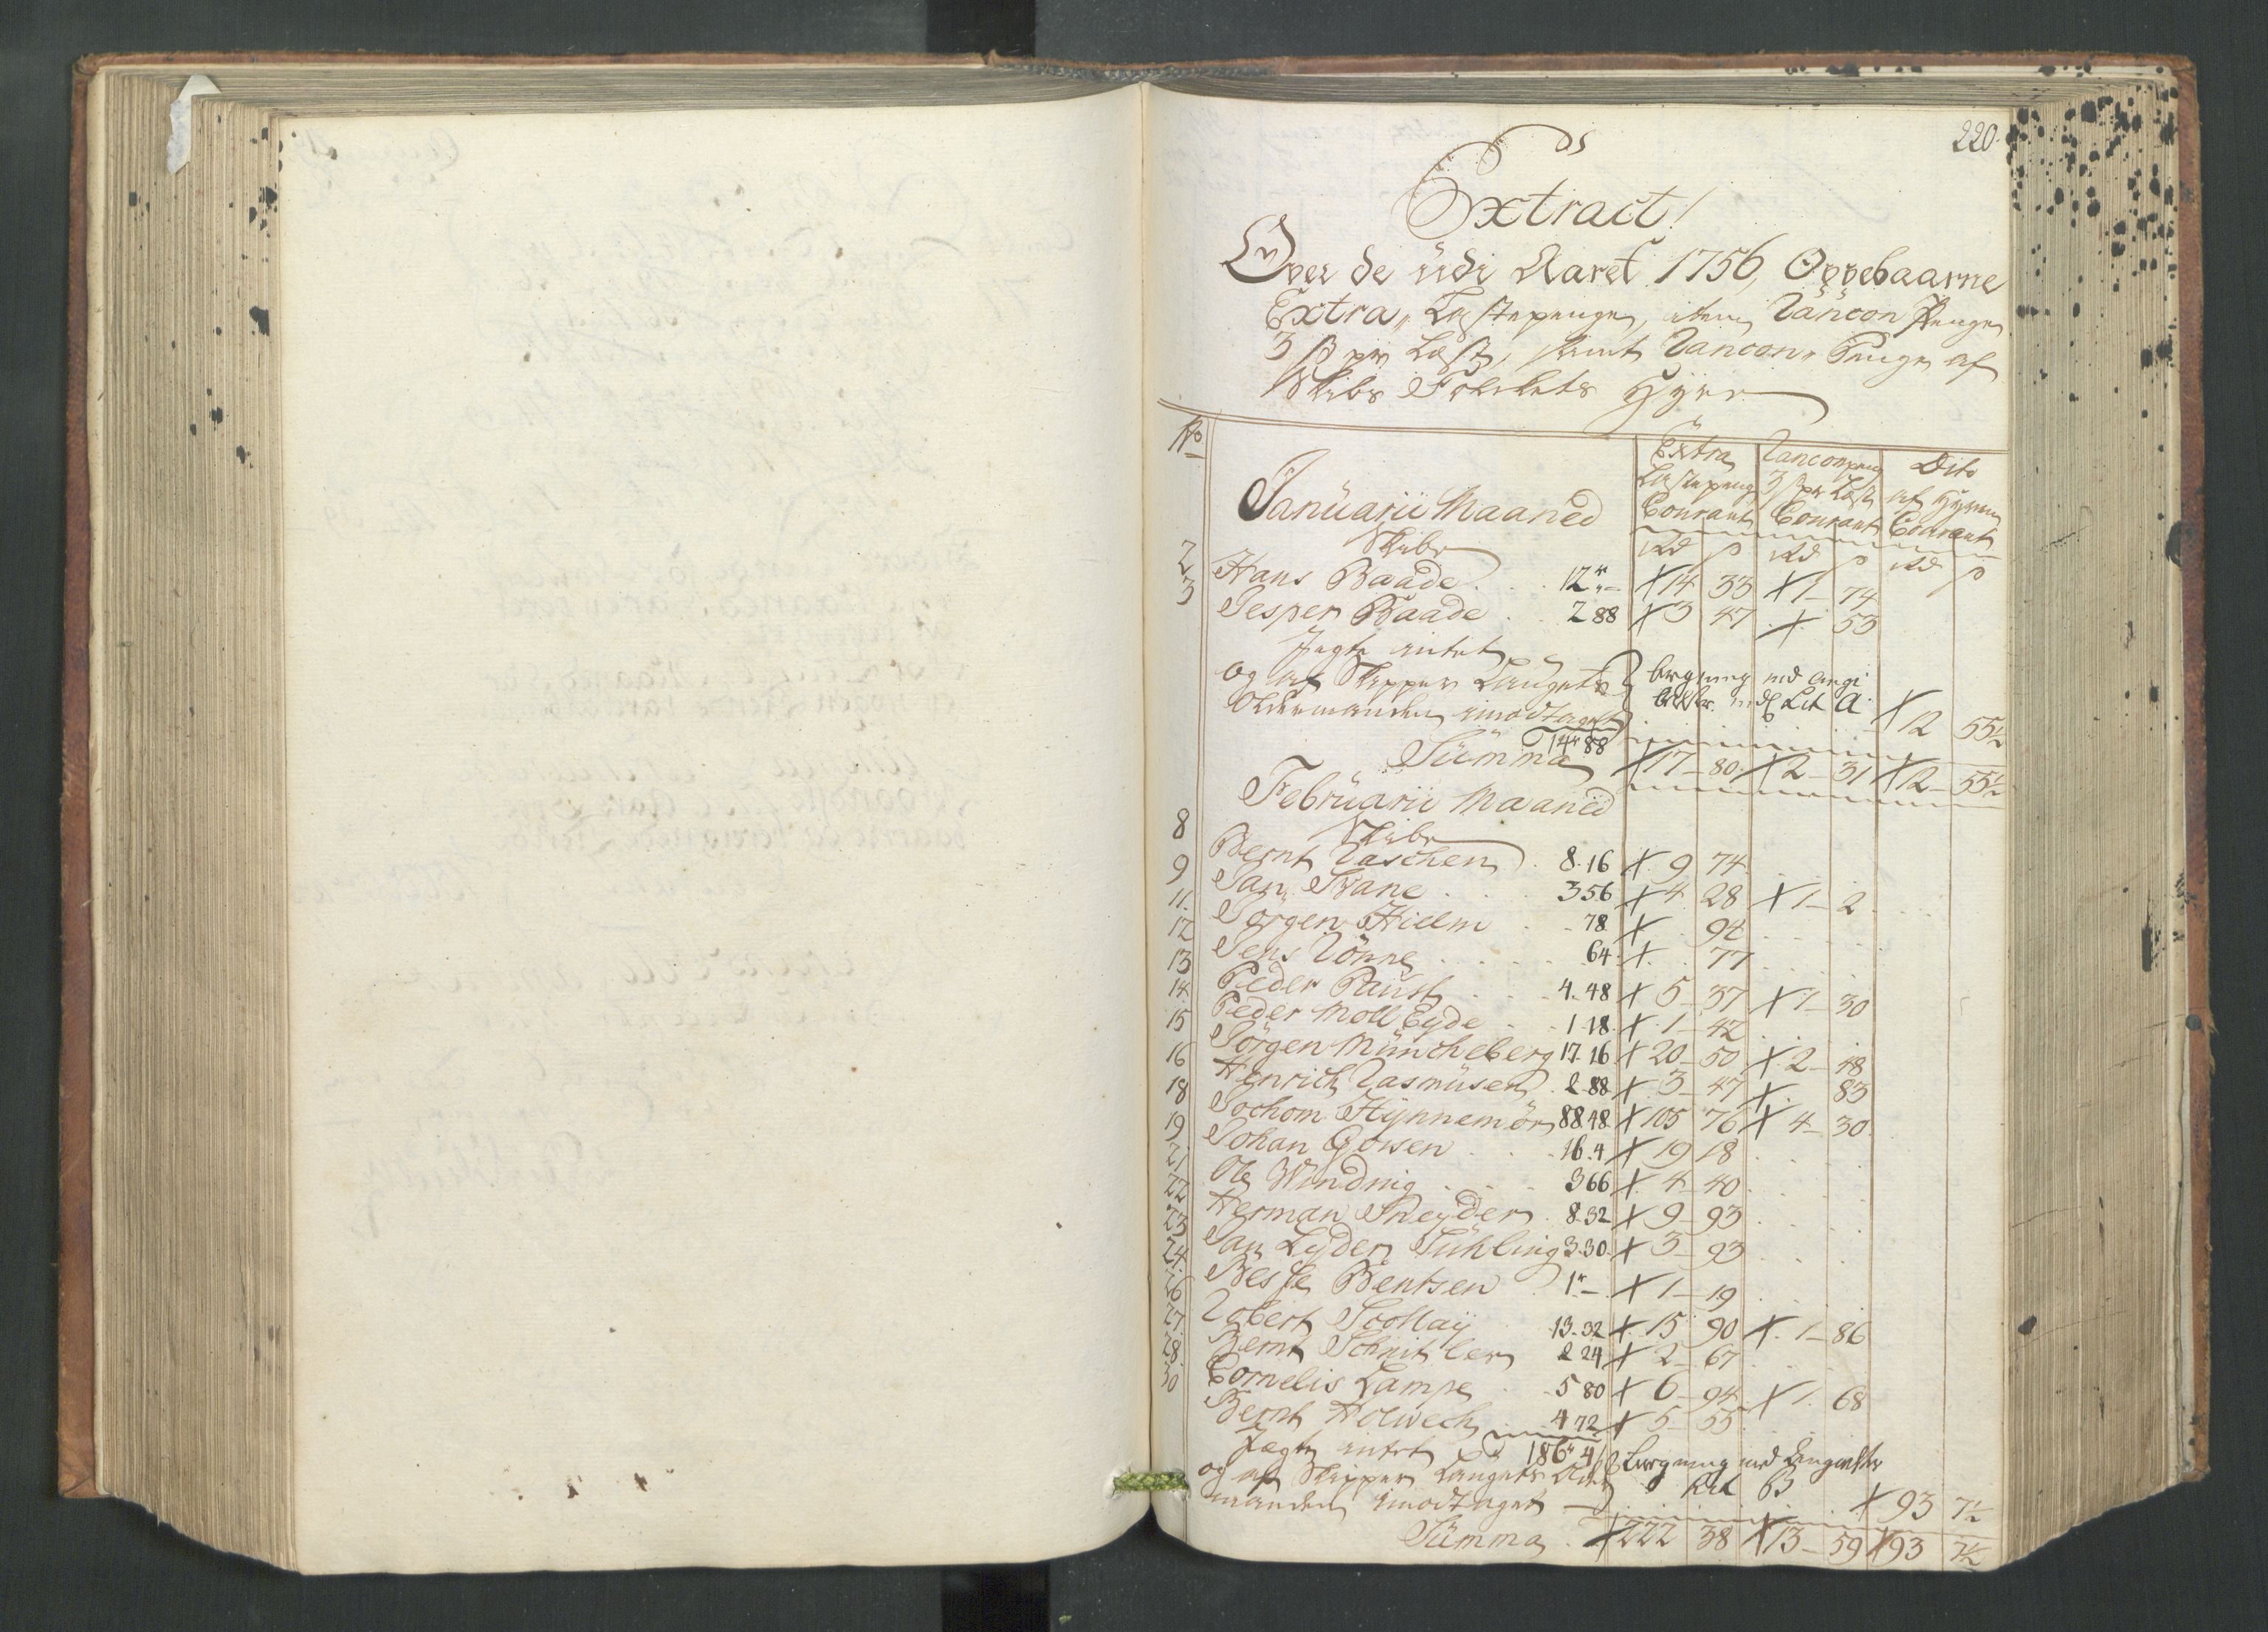 220.
Extract!
Over de udi Aaret 1756, Oppebaarne
Extra, Læstepenge, item Rancon Penge
3 ß pr Læst, samt Rancon, Penge af
Skibs Folckets Hyre
No
Extra Læstepenge Courant
Ranconpeng 3 ß pr Læst Courant
Dito af Hyren Courant
Januarii Maaned
Skibe
Rd ß Rd ß Rd ß
2 Hans Baade 12 — 14 33 1 74
3 Jesper Baade 2 88 3 47 53
Jægte intet
og af Skipper Laugets
Oldermanden imodtaget 12 55½
14 88
Summa 17 80 2 31 12 55½
Februarii Maaned
Skibe
8 Bernt Raschen 8. 16 9 74
9 Jan Svane 3 56 4 28 1 2
11. Jörgen Hielm 78 94
12 Jens Rönne 64 77
13 Peder Paust 4. 48 5 37 1 30
14 Peder Moll Eyde 1. 18 1 42
15 Jörgen Müncheberg 17. 16 20 50 2 48
16 Henrich Rasmusen 2 88 3 47 83
18 Jochom Hynnemör 88 48 105 76 4 30
19 Johan Gowsen 16. 4 19 18
21 Ole Windnig 3 66 4 40
22 Herman Sneyder 8. 32 9 93
23 Jan Lyder Sühling 3. 30 3 93
24. Besse Bentsen 1 — 1 19
26 Robert Scollay 13. 32 15 90 1 86
27. Bernt Schnitler 2 24 2 67
28. Cornelis Lampe 5 80 6 94 1. 68
30 Bernt Holwech 4 72 5 55
Jægte intet 186 4
og af Skipper Laugets Older
manden imodtaget Lit B 93 7½
Summa 222 38 13 59 93 7½